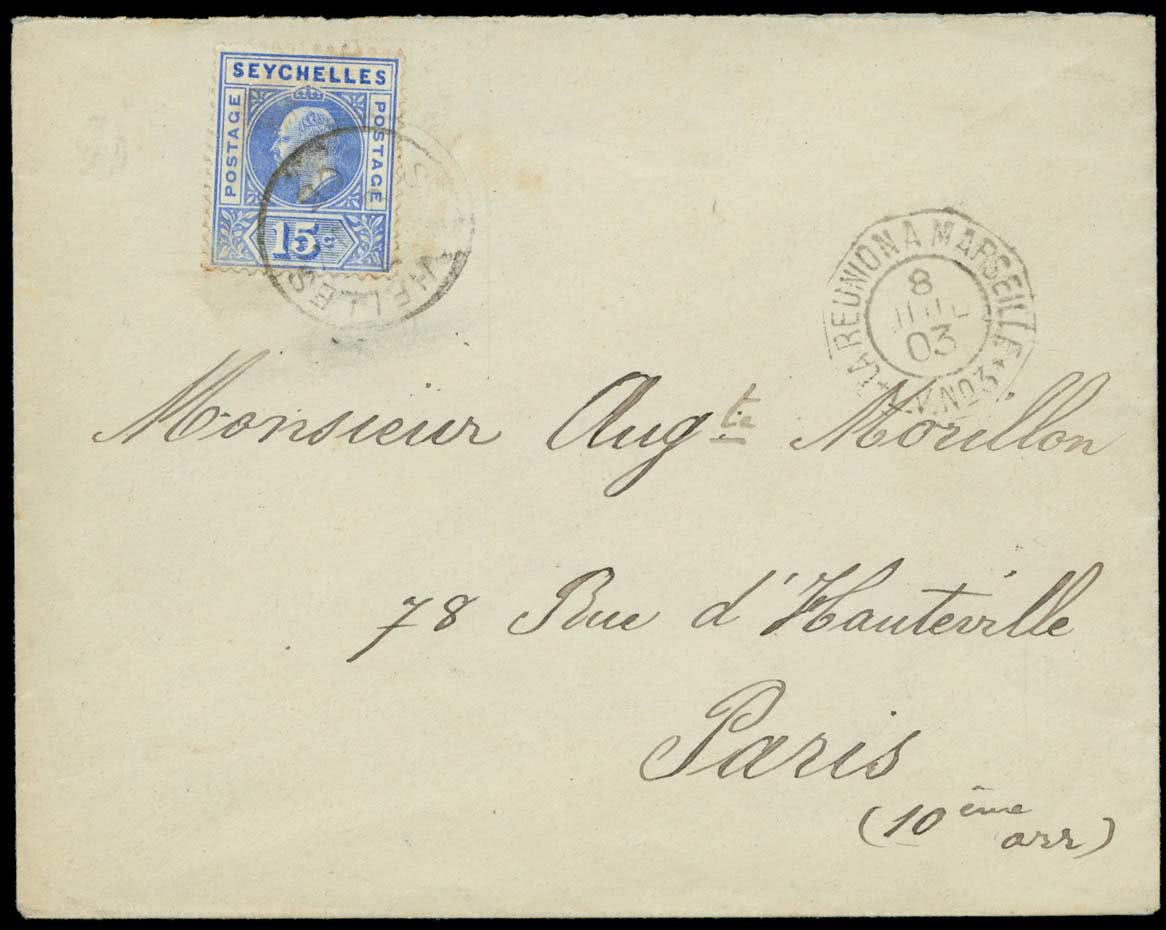 SEYCHELLES
POSTAGE
POSTAGE
15c
SEYCHELLES
LA REUNION A MARSEILLE
8
JUIL
03
L.V.No3
Monsieur Augte Morillon
78 Rue d'Hauteville
Paris
(10ème arr)